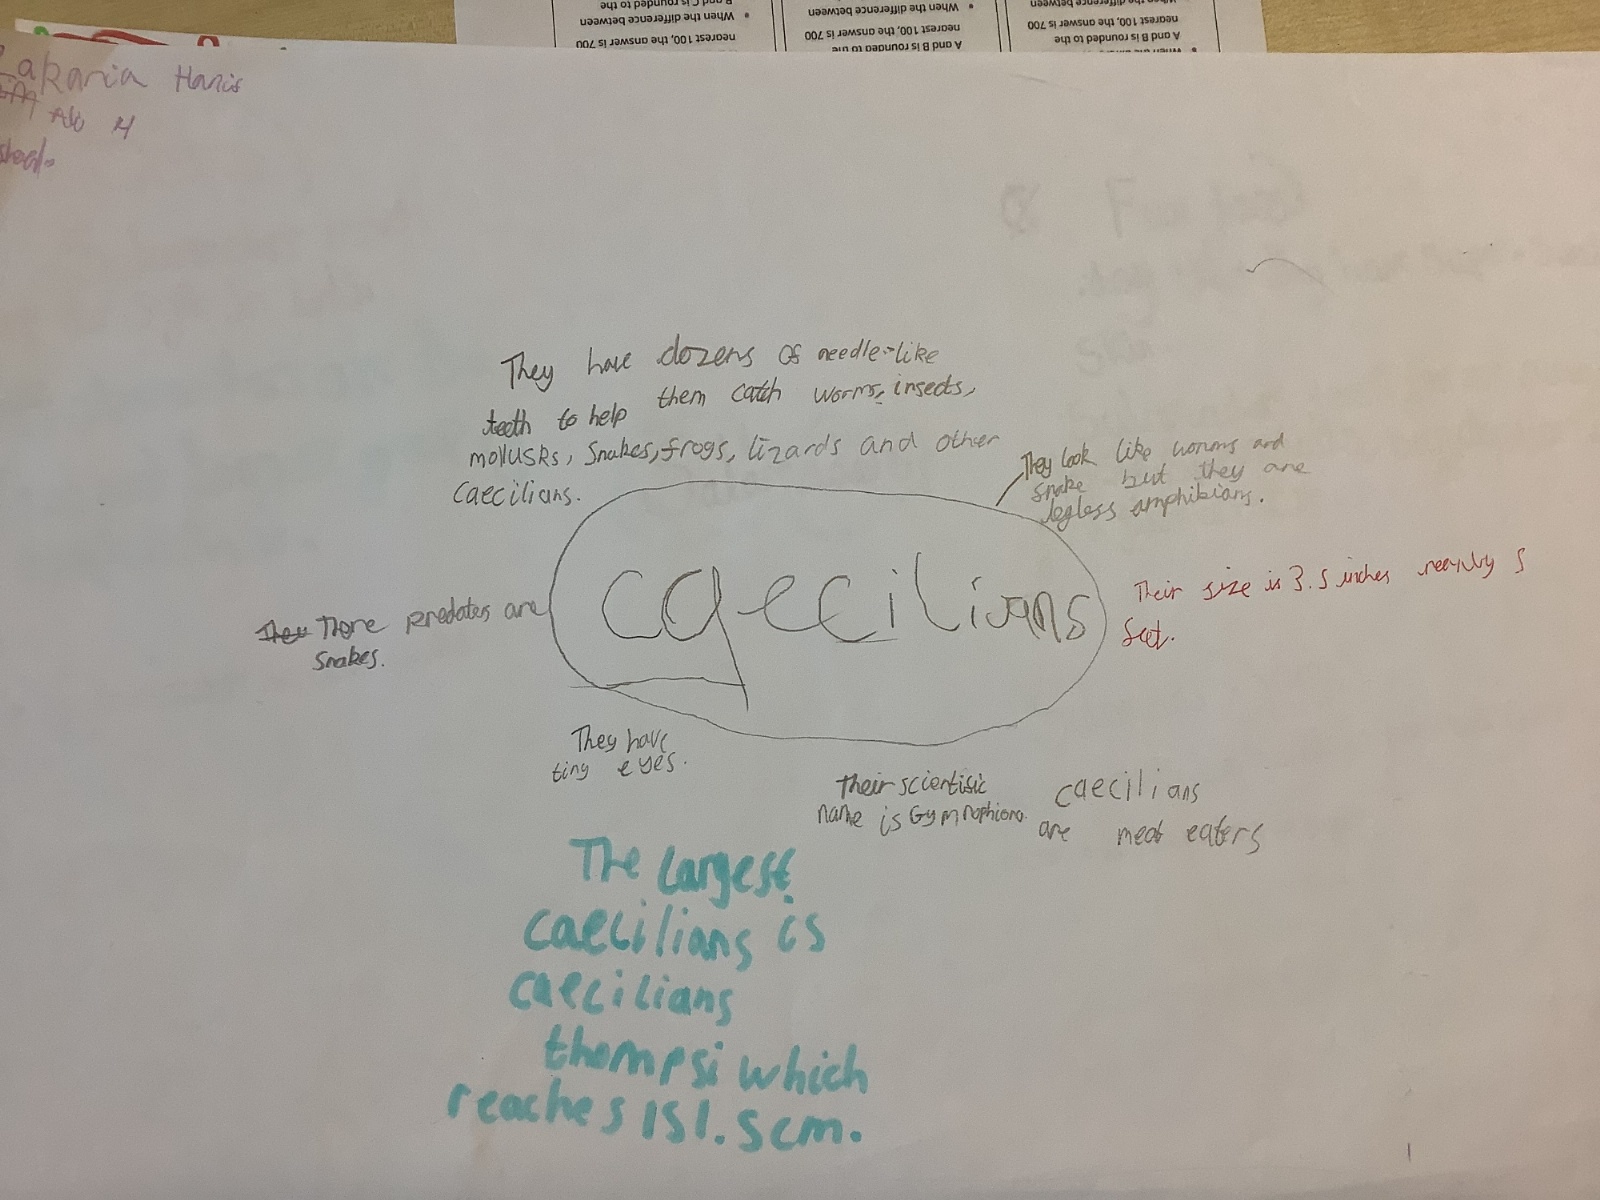 B and C is rounded to the
When the difference between
nearest 100, the answer is 700
When the difference between
nearest 100, the answer is 700
A and B is rounded to the
nearest 100, the answer is 700
A and B is rounded to the
akaria Haris
4
They have dozens of needle-like
teeth to help them catch worms, insects,
mollusks, snakes, frogs, lizards and other
caecilians.
They look like worms and
snake but they are
legless amphibians.
caecilians
Their size is 3.5 inches nearly 5
feet.
There predates are
snakes.
They have
tiny eyes.
Their scientific
name is Gymnophiona.
caecilians
are meat eaters
The largest
caecilians is
caecilians
thompsi which
reaches 151.5cm.